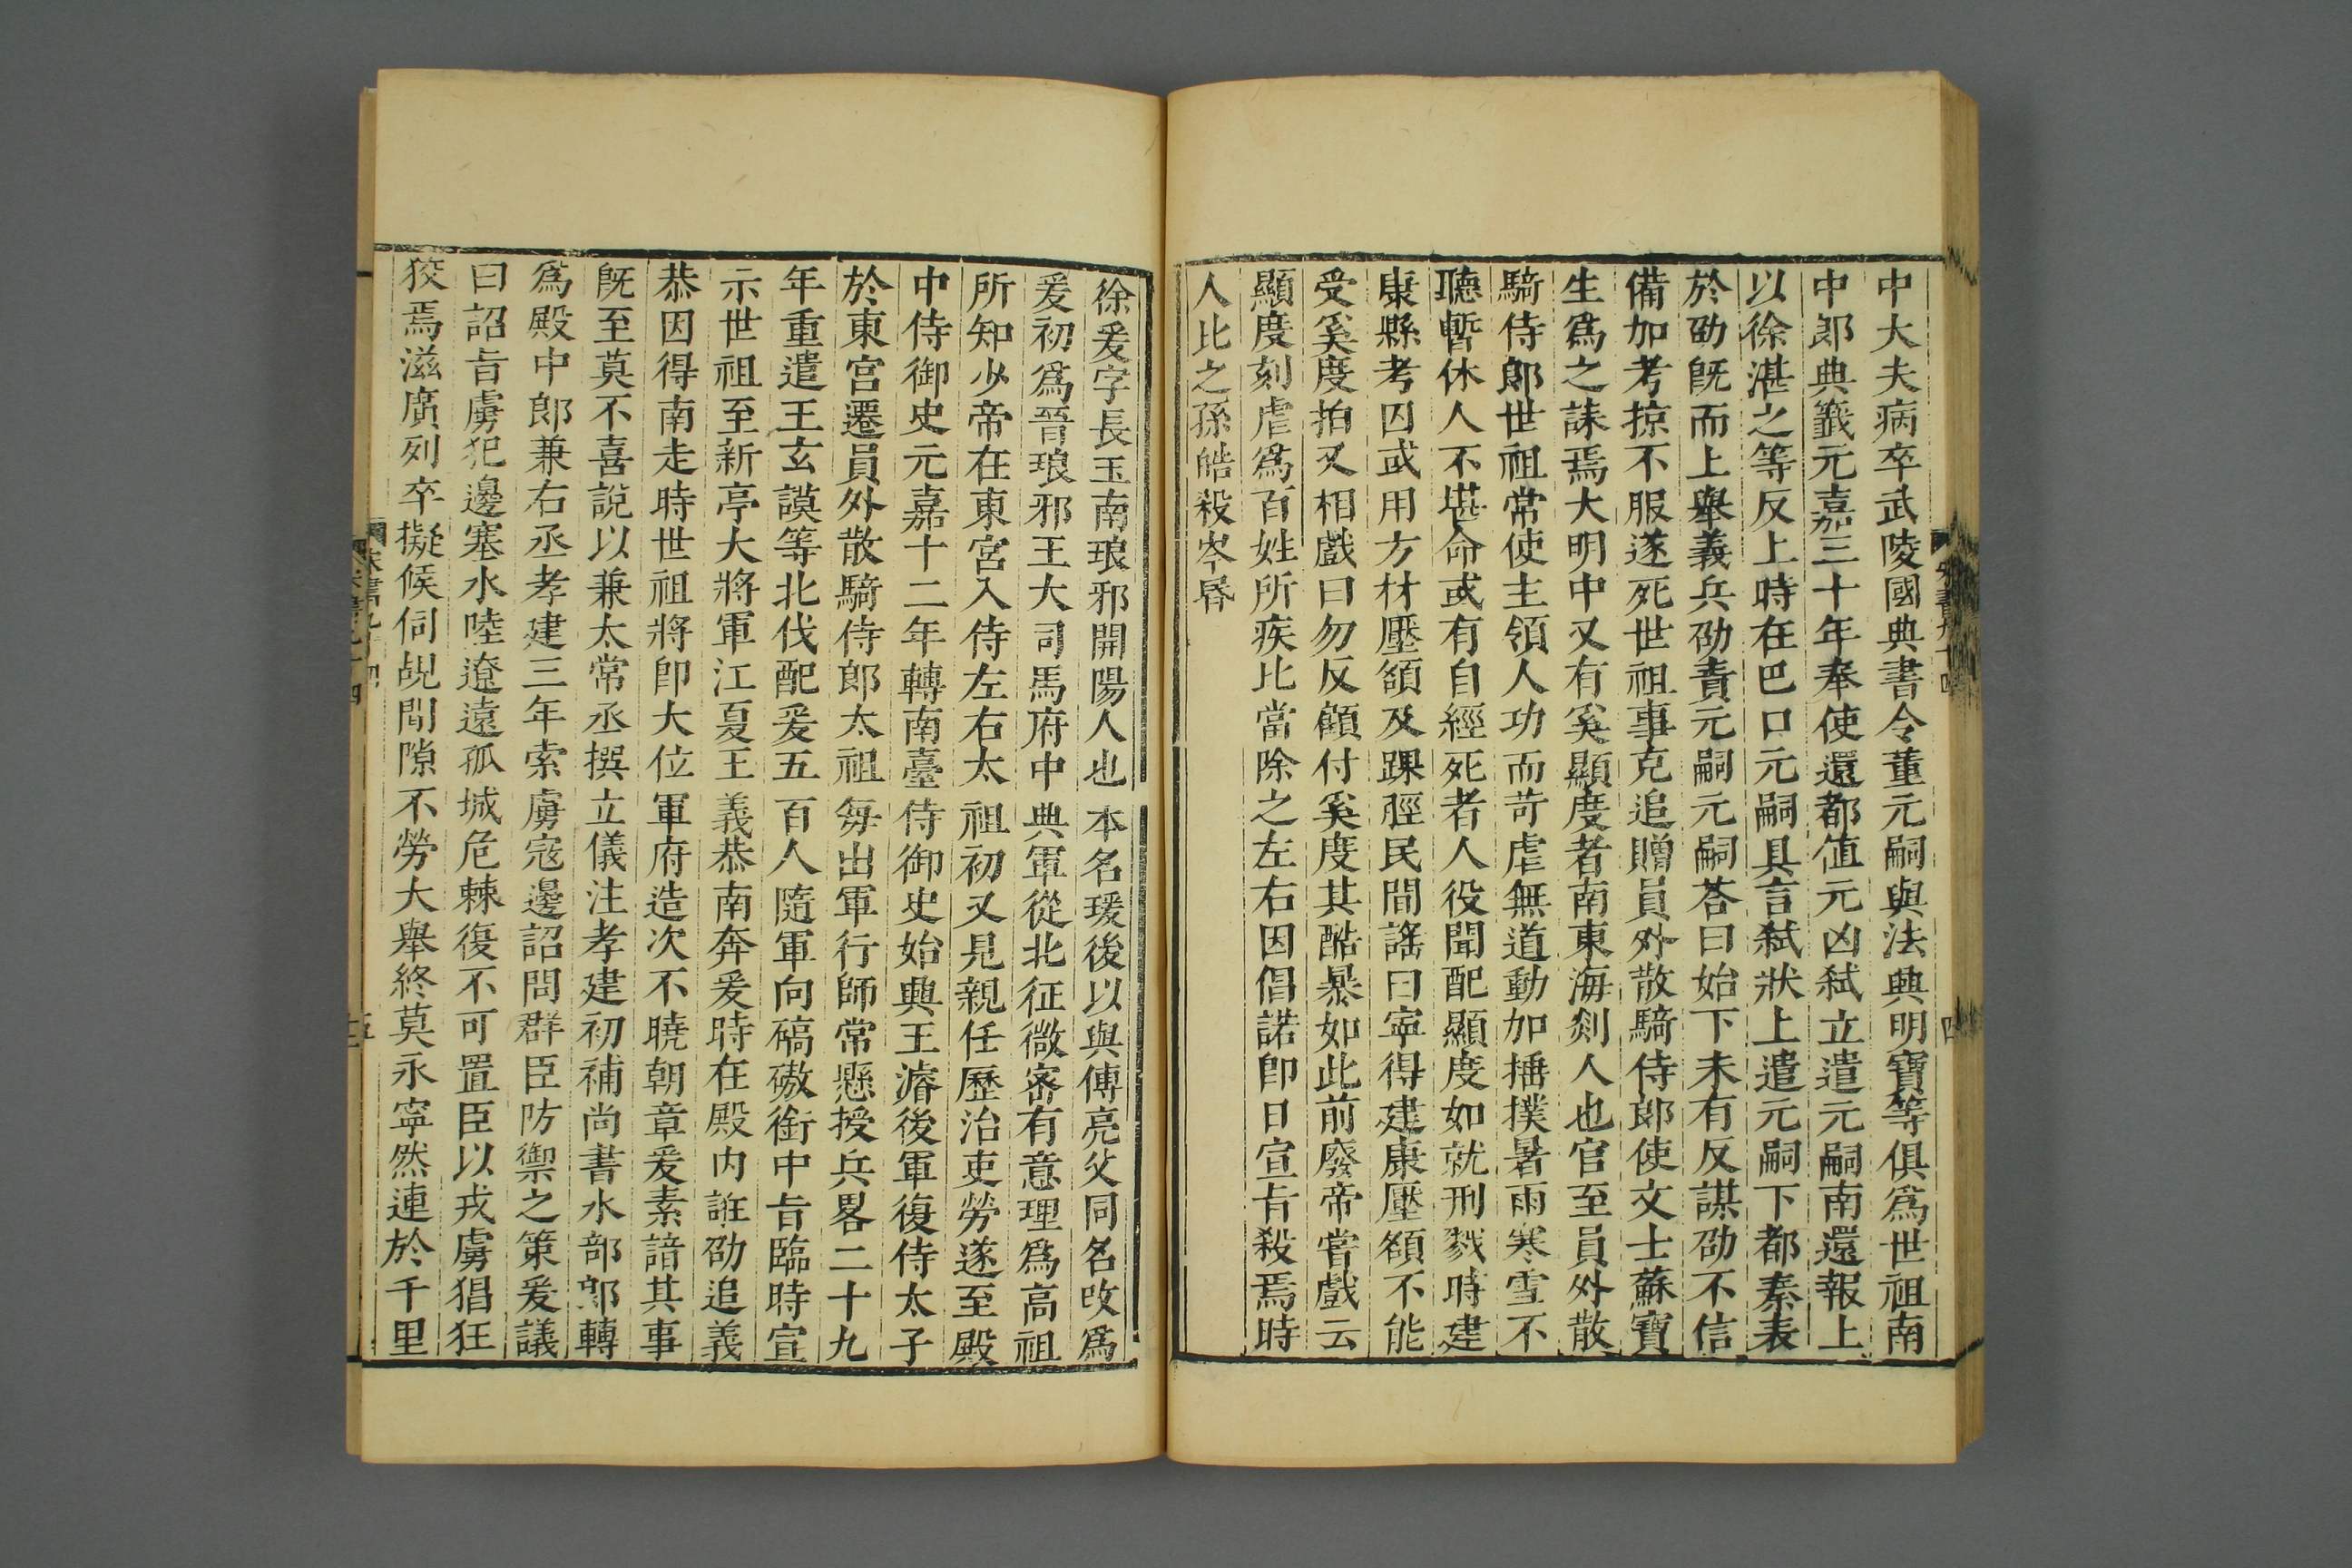 中大夫病卒武陵國典書令董元嗣與法興明寶等俱爲世祖南
中郎典籖元嘉三十年奉使還都值元凶弑立遣元嗣南還報上
以徐湛之等反上時在巴口元嗣具言弑狀上遣元嗣下都奏表
於劭既而上舉義兵劭責元嗣元嗣荅曰始下未有反謀劭不信
備加考掠不服遂死世祖事克追贈員外散騎侍郎使文士蘇寶
生爲之誄焉大明中又有奚顯度者南東海剡人也官至員外散
騎侍郎世祖常使主領人功而苛虐無道動加捶撲暑雨寒雪不
聽暫休人不堪命或有自經死者人役聞配顯度如就刑戮時建
康縣考囚或用方材壓額及踝脛民間謠曰寜得建康壓額不能
受奚度拍又相戲曰勿反顧付奚度其酷暴如此前廢帝嘗戲云
顯度刻虐爲百姓所疾比當除之左右因倡諾卽日宣旨殺焉時
人比之孫皓殺岑昬
徐爰字長玉南琅邪開陽人也本名瑗後以與傅亮父同名改爲
爰初爲晉琅邪王大司馬府中典軍從北征微密有意理爲高祖
所知少帝在東宮入侍左右太祖初又見親任歷治吏勞遂至殿
中侍御史元嘉十二年轉南臺侍御史始興王濬後軍復侍太子
於東宮遷員外散騎侍郎太祖每出軍行師常懸授兵畧二十九
年重遣王玄謨等北伐配爰五百人隨軍向碻磝銜中旨臨時宣
示世祖至新亭大將軍江夏王義恭南奔爰時在殿内誑劭追義
恭因得南走時世祖將卽大位軍府造次不曉朝章爰素諳其事
既至莫不喜說以兼太常丞撰立儀注孝建初補尚書水部郎轉
爲殿中郎兼右丞孝建三年索虜寇邊詔問群臣防禦之策爰議
曰詔旨虜犯邊塞水陸遼遠孤城危棘復不可置臣以戎虜猖狂
狡焉滋廣列卒擬候伺覘間隙不勞大舉終莫永寧然連於千里